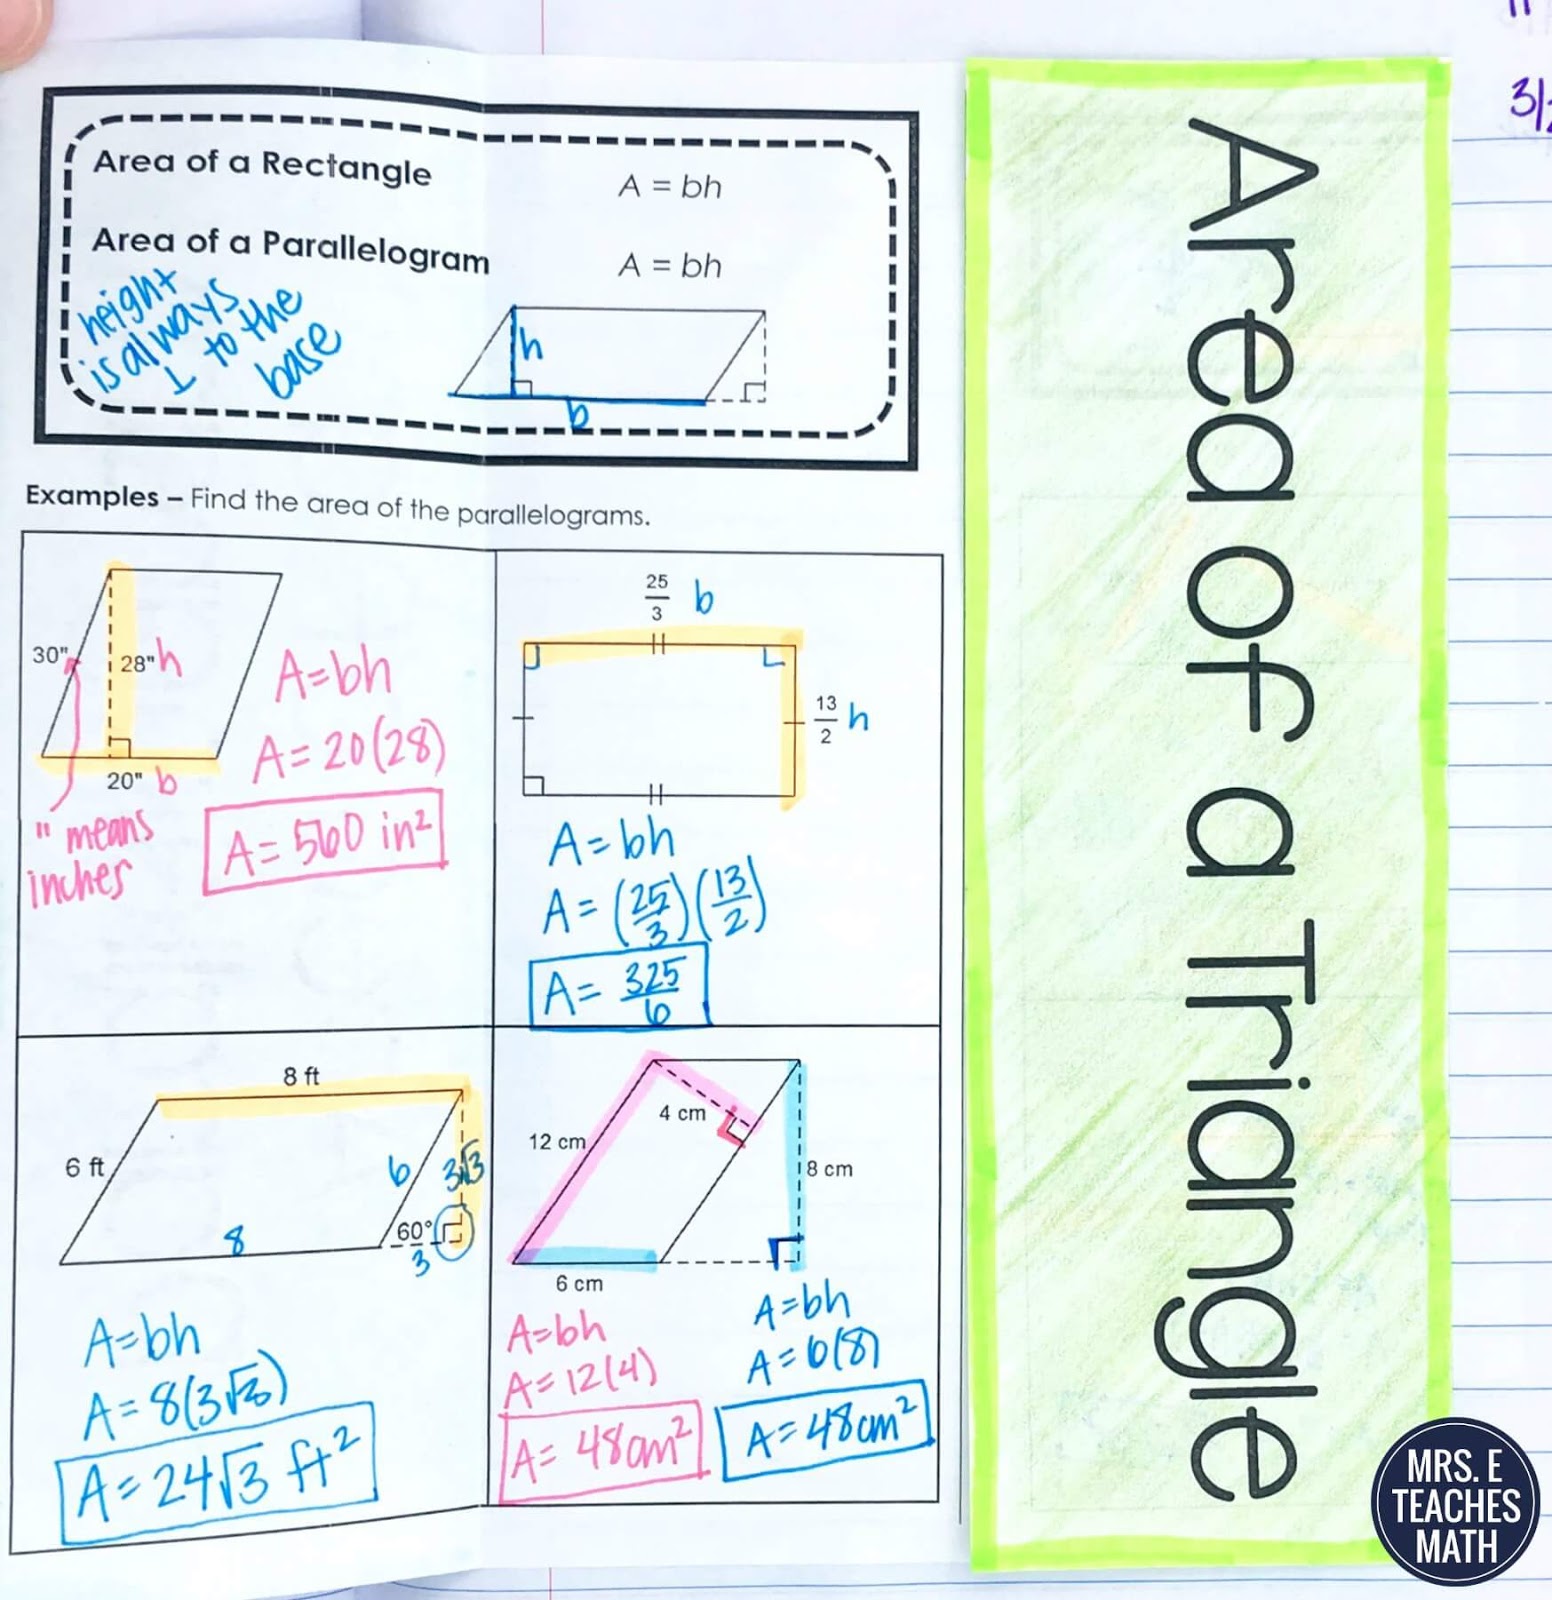 Area of a Rectangle
A = bh
Area of a Parallelogram
A = bh
height
is always
⊥ to the
base
h
b
Examples – Find the area of the parallelograms.
30"
28" h
20" b
" means
inches
A=bh
A=20(28)
A=560 in²
25/3 b
13/2 h
A=bh
A=(25/3)(13/2)
A=325/6
8 ft
6 ft
6
3√3
60°
8
3
A=bh
A=8(3√3)
A=24√3 ft²
12 cm
4 cm
8 cm
6 cm
A=bh
A=12(4)
A=48cm²
A=bh
A=6(8)
A=48cm²
Area of a Triangle
MRS. E
TEACHES
MATH